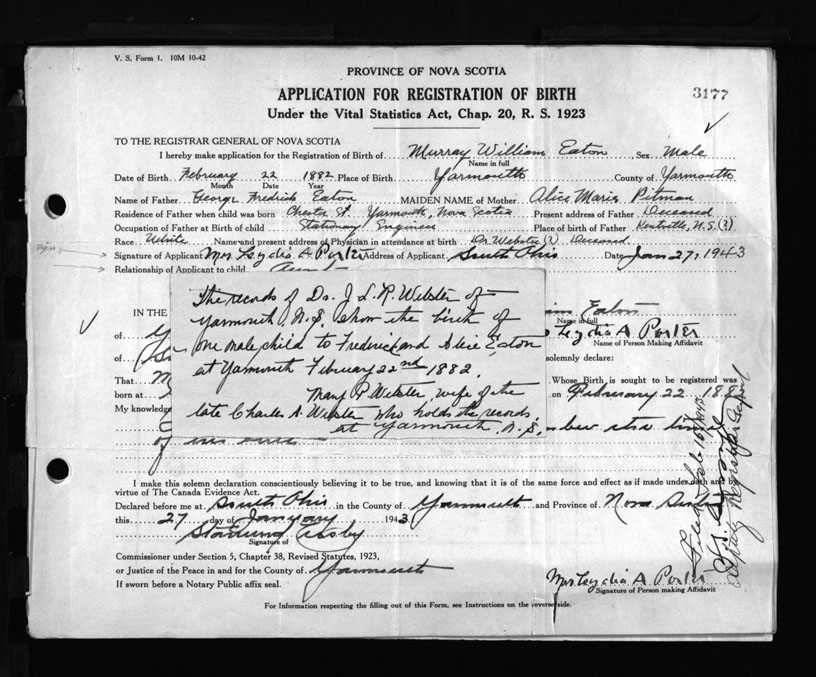 V. S. Form 1. 10M 10-42
PROVINCE OF NOVA SCOTIA
3177
APPLICATION FOR REGISTRATION OF BIRTH
Under the Vital Statistics Act, Chap. 20, R. S. 1923
TO THE REGISTRAR GENERAL OF NOVA SCOTIA
I hereby make application for the Registration of Birth of Murray William Eaton, Sex Male
Name in full
Date of Birth February 22 1882 Place of Birth Yarmouth County of Yarmouth
Month Date Year
Name of Father George Fredrick Eaton MAIDEN NAME of Mother Alice Maria Pitman
Residence of Father when child was born Chester St. Yarmouth, Nova Scotia Present address of Father Deceased
Occupation of Father at Birth of child Stationary Engineer Place of birth of Father Kentville, N.S. (?)
Race White Name and present address of Physician in attendance at birth Dr. Webster (?) Deceased
Signature of Applicant Mrs. Lydia A Porter Address of Applicant South Ohio Date Jan 27, 1943
Relationship of Applicant to child Aunt
The records of Dr. J. L. R. Webster of
Yarmouth N.S. show the birth of
one male child to Frederick and Alice Eaton
at Yarmouth February 22nd 1882.
Mary P. Webster, wife of the
late Charles A. Webster who holds the records
at Yarmouth, N.S.
IN THE
Eaton
Name in full
of Lydia A Porter
Name of Person Making Affidavit
of solemnly declare:
That Whose Birth is sought to be registered was
born at on February 22 1882
My knowledge
I make this solemn declaration conscientiously believing it to be true, and knowing that it is of the same force and effect as if made under oath and by
virtue of The Canada Evidence Act.
Declared before me at South Ohio in the County of Yarmouth and Province of Nova Scotia
this 27 day of January 1943
Crosby
Signature of
Commissioner under Section 5, Chapter 38, Revised Statutes, 1923,
or Justice of the Peace in and for the County of Yarmouth
If sworn before a Notary Public affix seal.
Mrs Lydia A Porter
Signature of Person making Affidavit
For Information respecting the filling out of this Form, see Instructions on the reverse side.